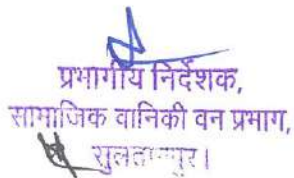 प्रभागीय निर्देशक,
सामाजिक वानिकी वन प्रभाग,
सुलतानपुर।